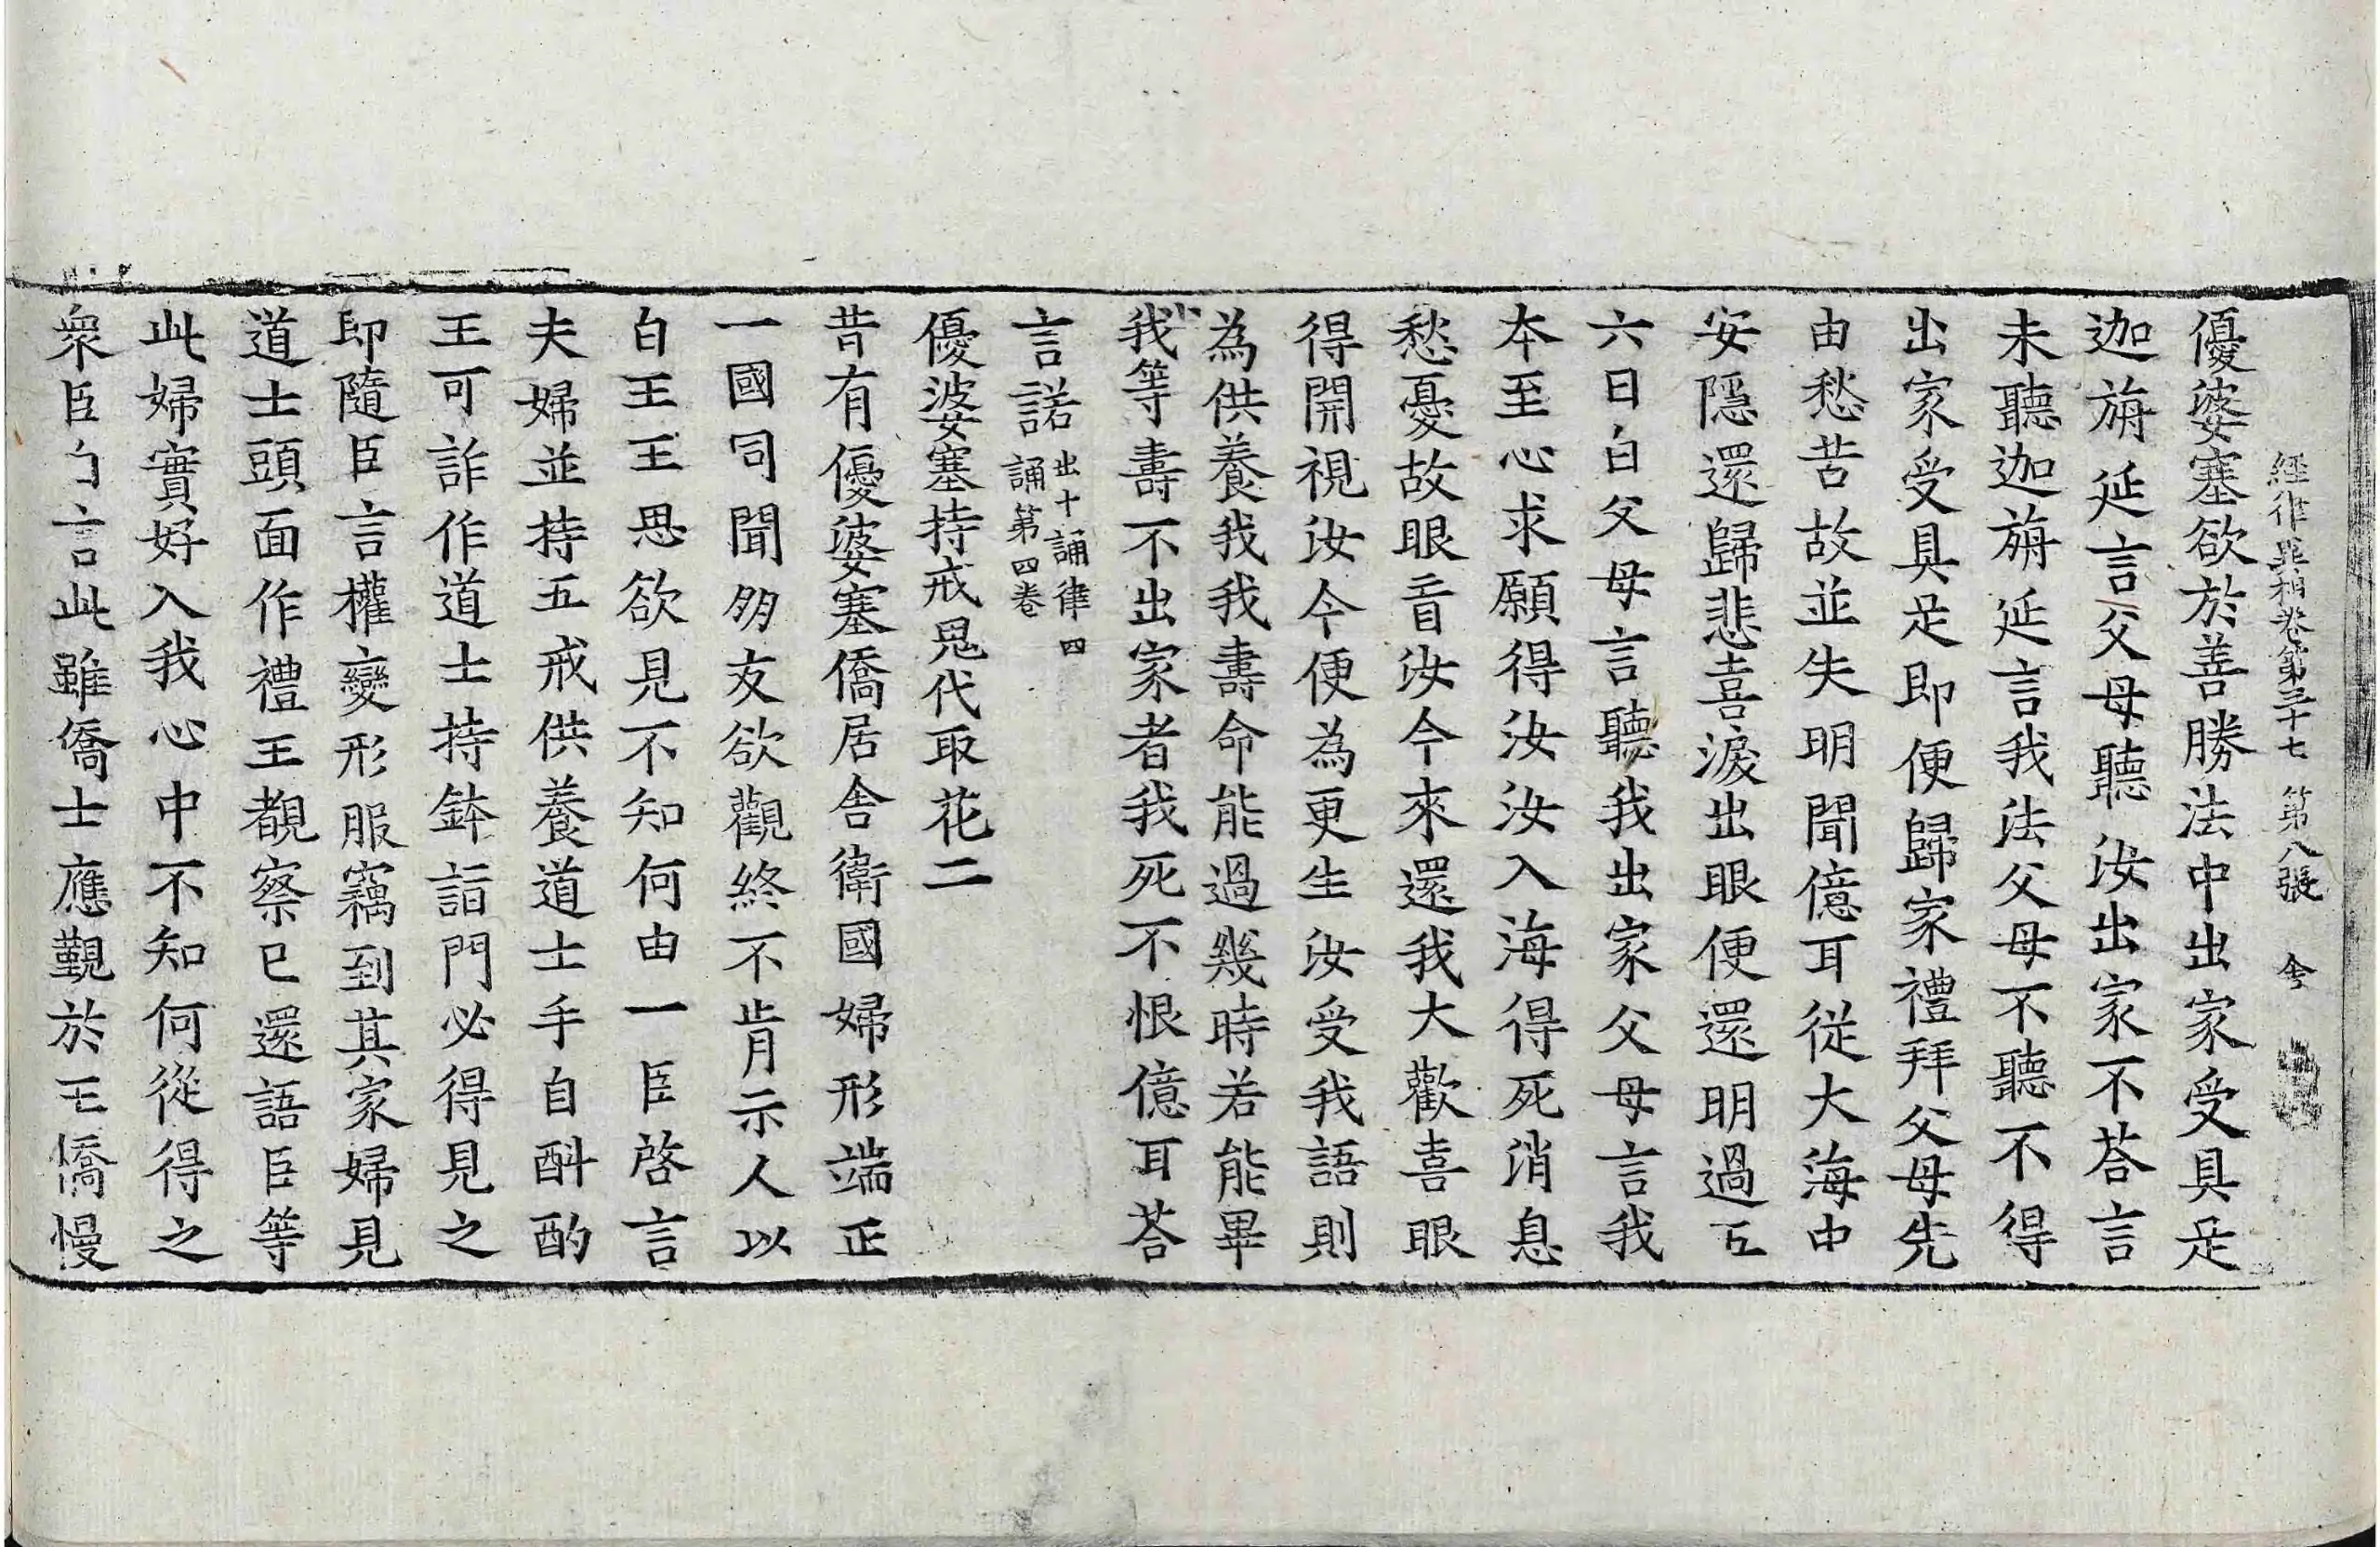 經律異相卷第三十七 第八張 令
優婆塞欲於善勝法中出家受具足
迦旃延言父母聽汝出家不荅言
未聽迦旃延言我法父母不聽不得
出家受具足即便歸家禮拜父母先
由愁苦故並失明聞億耳從大海中
安隱還歸悲喜淚出眼便還明過五
六日白父母言聽我出家父母言我
本至心求願得汝汝入海得死消息
愁憂故眼盲汝今來還我大歡喜眼
得開視汝今便為更生汝受我語則
為供養我我壽命能過幾時若能畢
我等壽不出家者我死不恨億耳荅
言諾 出十誦律四誦第四卷
優婆塞持戒鬼代取花二
昔有優婆塞僑居舍衛國婦形端正
一國同聞朋友欲觀終不肯示人以
白王王思欲見不知何由一臣啓言
夫婦並持五戒供養道士手自斟酌
王可詐作道士持鉢詣門必得見之
即隨臣言權變形服竊到其家婦見
道士頭面作禮王覩察已還語臣等
此婦實好入我心中不知何從得之
衆臣白言此雖僑士應覲於王僑慢